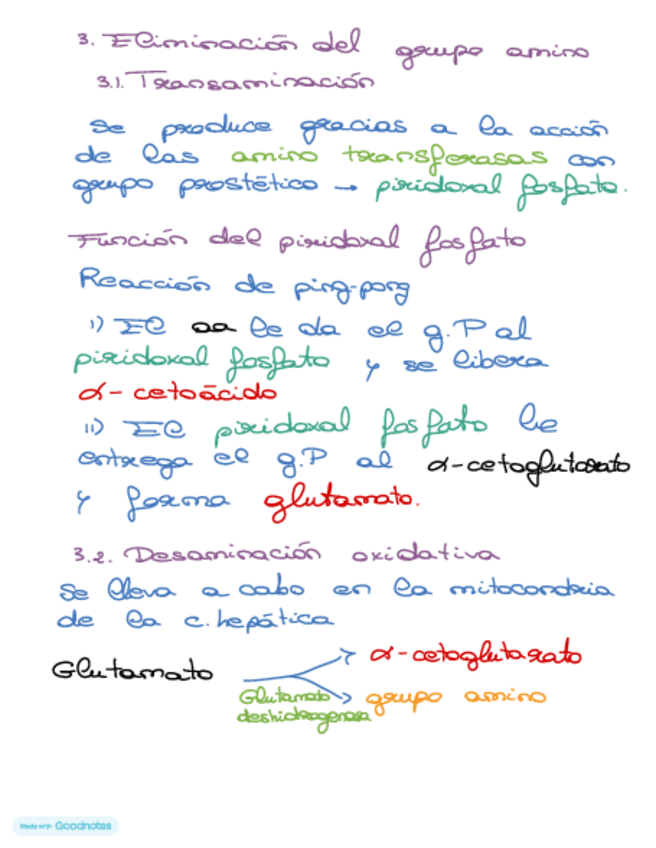 3. Eliminación del grupo amino
3.1. Transaminación
Se produce gracias a la acción
de las amino transferasas con
grupo prostético → piridoxal fosfato.
Función del piridoxal fosfato
Reacción de ping-pong
i) El aa le da el g.P al
piridoxal fosfato y se libera
α-cetoácido
ii) El piridoxal fosfato le
entrega el g.P al α-cetoglutarato
y forma glutamato.
3.2. Desaminación oxidativa
Se lleva a cabo en la mitocondria
de la c. hepática
Glutamato
α-cetoglutarato
Glutamato
deshidrogenasa
grupo amino
Made with Goodnotes